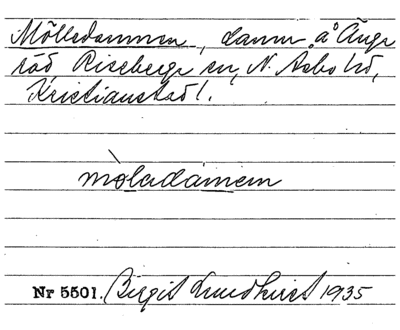 Mölledammen, damm å Änga
röd Riseberga sn, N. Åsbo hd,
Kristianstad l.
mòladàmєm
Nr 5501. Birgit Lundkvist 1935